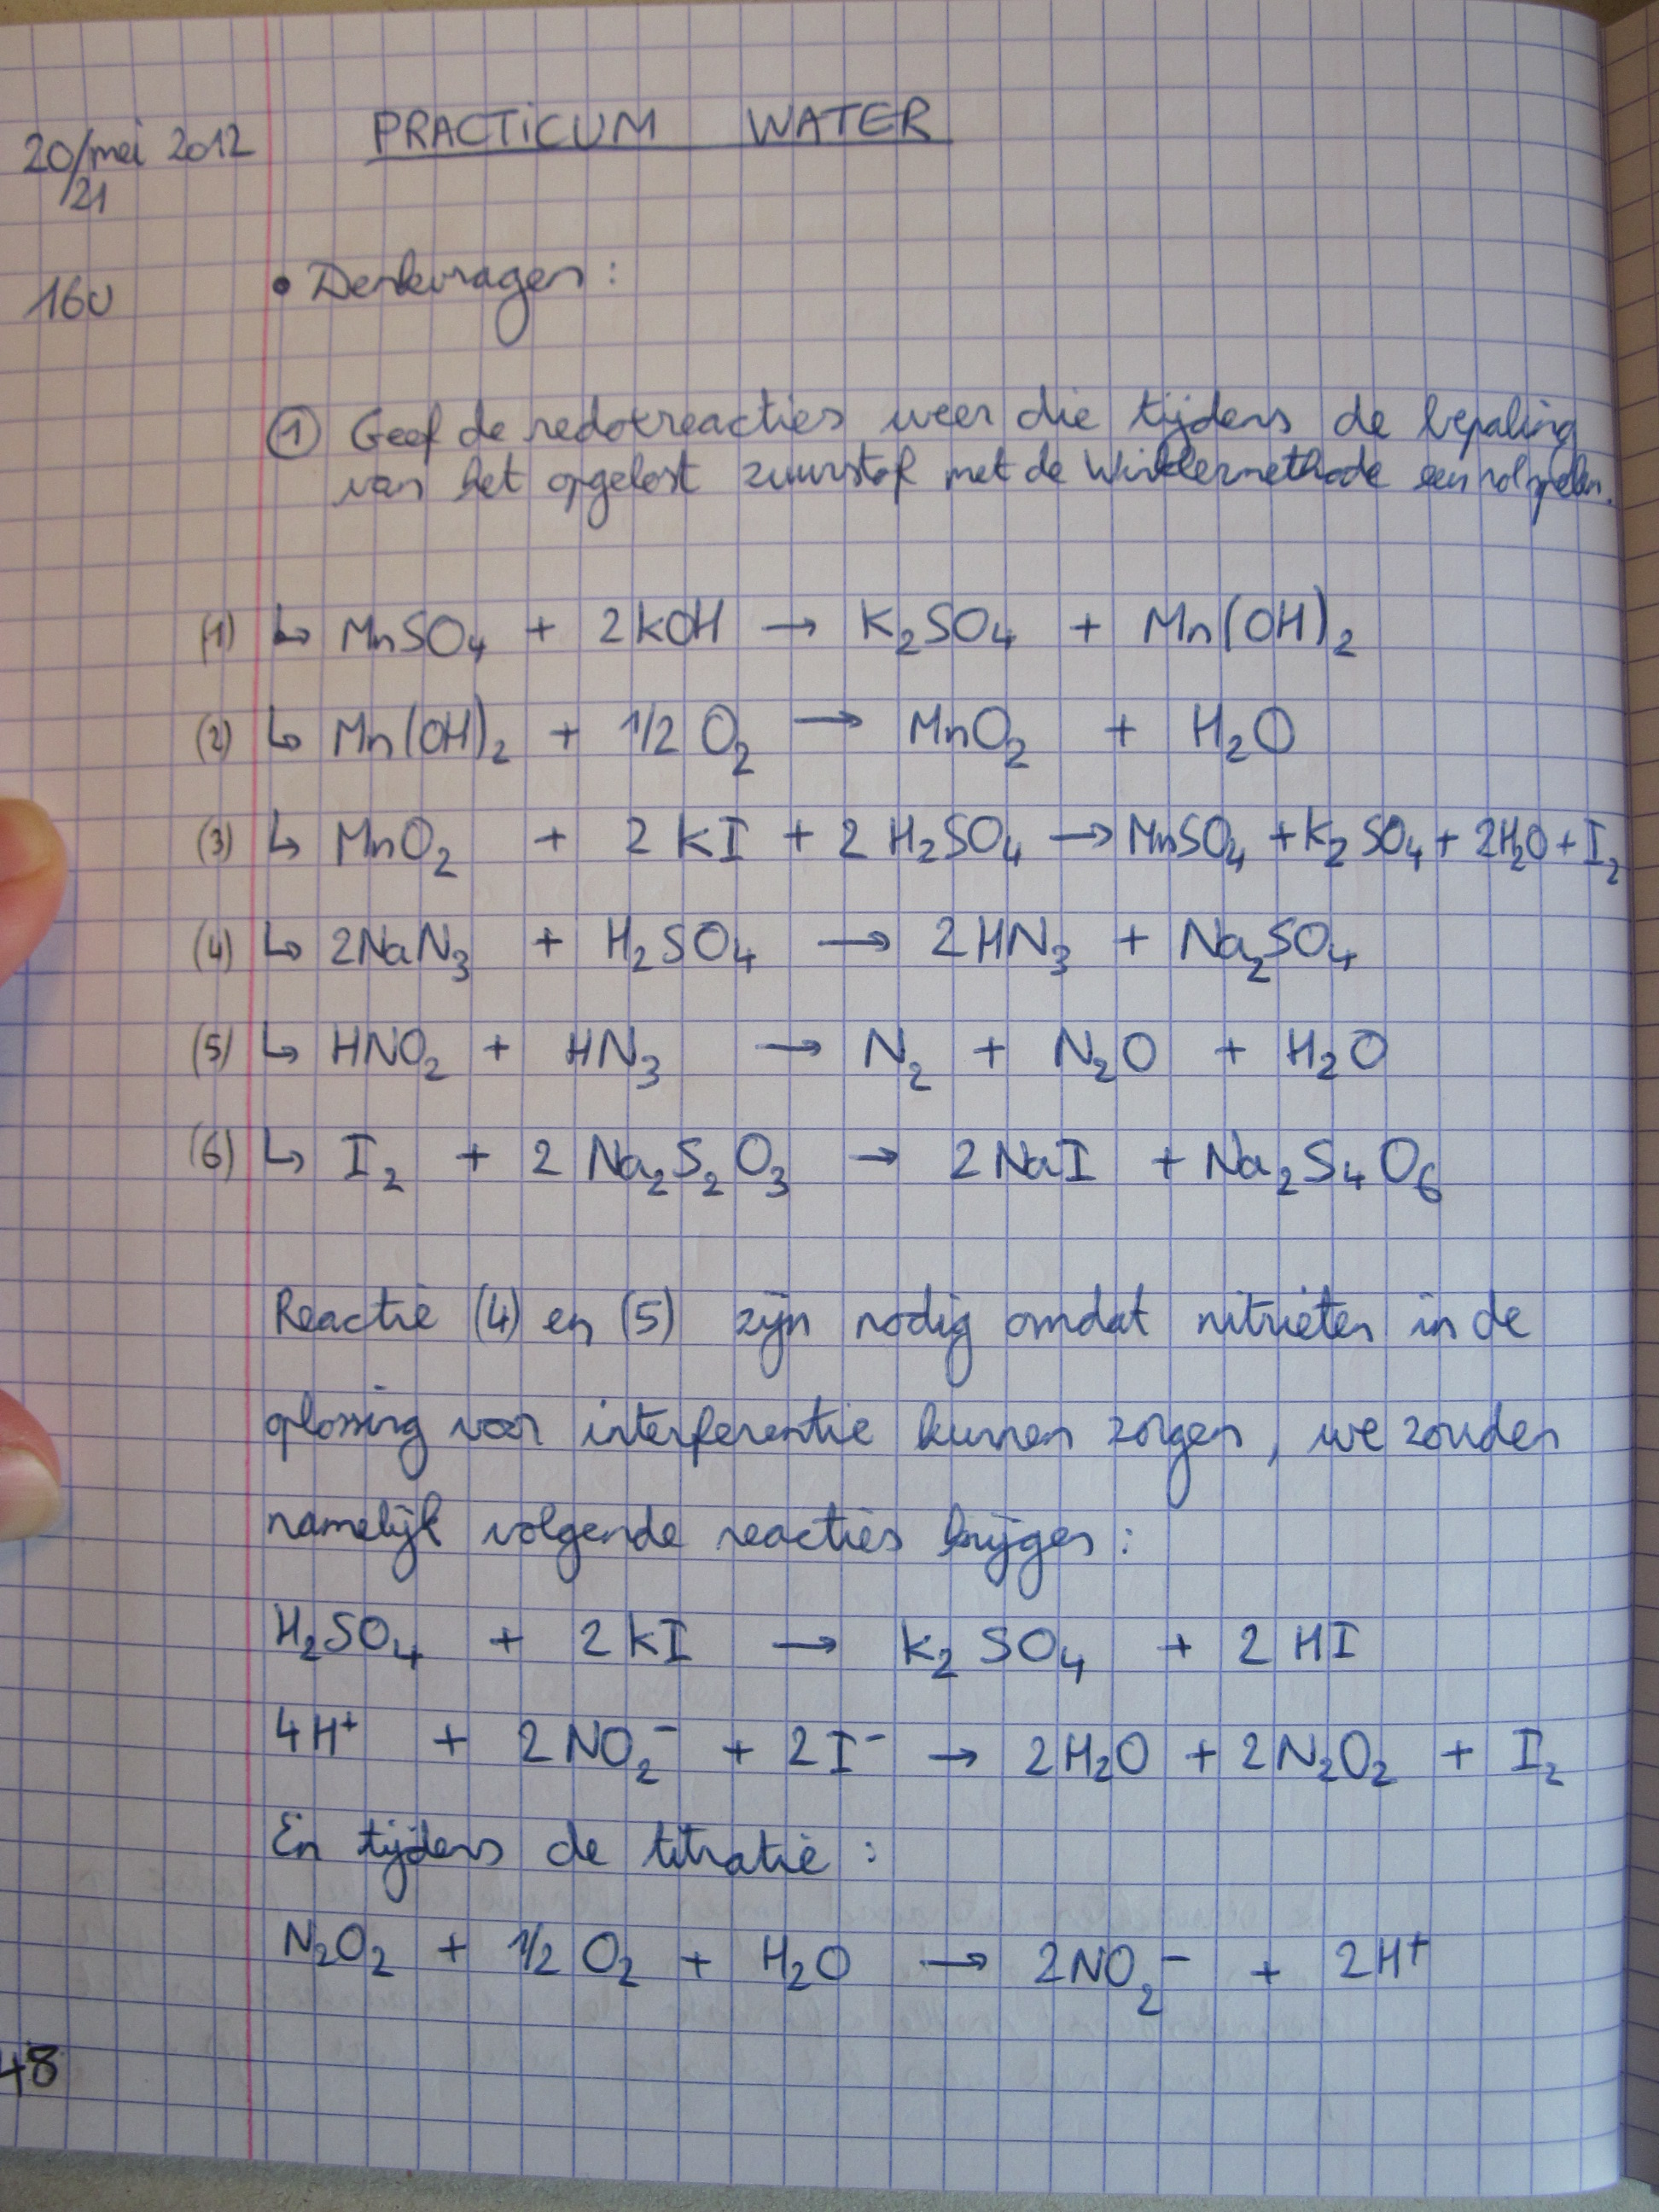 PRACTICUM WATER
20/mei 2012
/21
16u
• Denkvragen :
① Geef de redoxreacties weer die tijdens de bepaling
van het opgelost zuurstof met de Winklermethode een rol spelen.
(1) ↳ MnSO₄ + 2KOH → K₂SO₄ + Mn(OH)₂
(2) ↳ Mn(OH)₂ + 1/2 O₂ → MnO₂ + H₂O
(3) ↳ MnO₂ + 2 KI + 2 H₂SO₄ → MnSO₄ + K₂SO₄ + 2H₂O + I₂
(4) ↳ 2NaN₃ + H₂SO₄ → 2HN₃ + Na₂SO₄
(5) ↳ HNO₂ + HN₃ → N₂ + N₂O + H₂O
(6) ↳ I₂ + 2 Na₂S₂O₃ → 2NaI + Na₂S₄O₆
Reactie (4) en (5) zijn nodig omdat nitrieten in de
oplossing voor interferentie kunnen zorgen, we zouden
namelijk volgende reacties krijgen :
H₂SO₄ + 2 KI → K₂SO₄ + 2 HI
4H⁺ + 2 NO₂⁻ + 2 I⁻ → 2H₂O + 2N₂O₂ + I₂
En tijdens de titratie :
N₂O₂ + 1/2 O₂ + H₂O → 2NO₂⁻ + 2H⁺
48